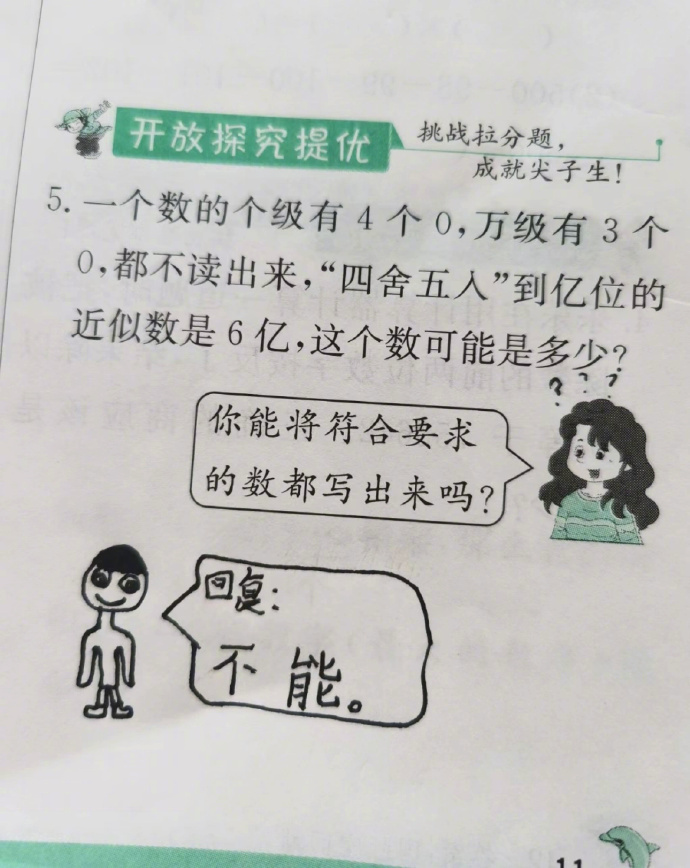 开放探究提优
挑战拉分题，
成就尖子生！
5. 一个数的个级有 4 个 0，万级有 3 个
0，都不读出来，“四舍五入”到亿位的
近似数是 6 亿，这个数可能是多少？
? ? ?
你能将符合要求
的数都写出来吗？
回复：
不能。
11